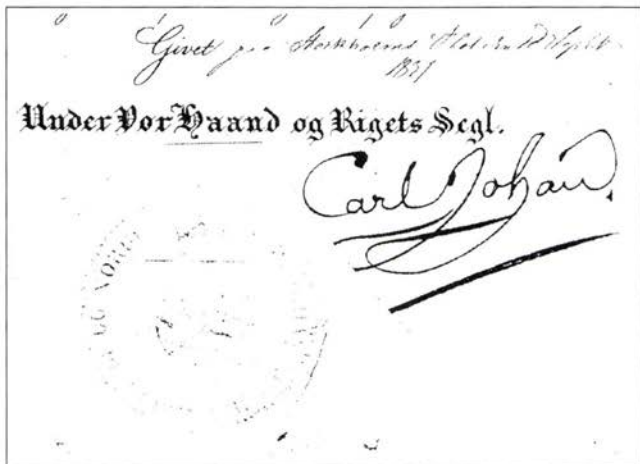 Givet paa Stockholms Slot
1821
Under Vor Haand og Rigets Segl.
Carl Johan
OG NORG